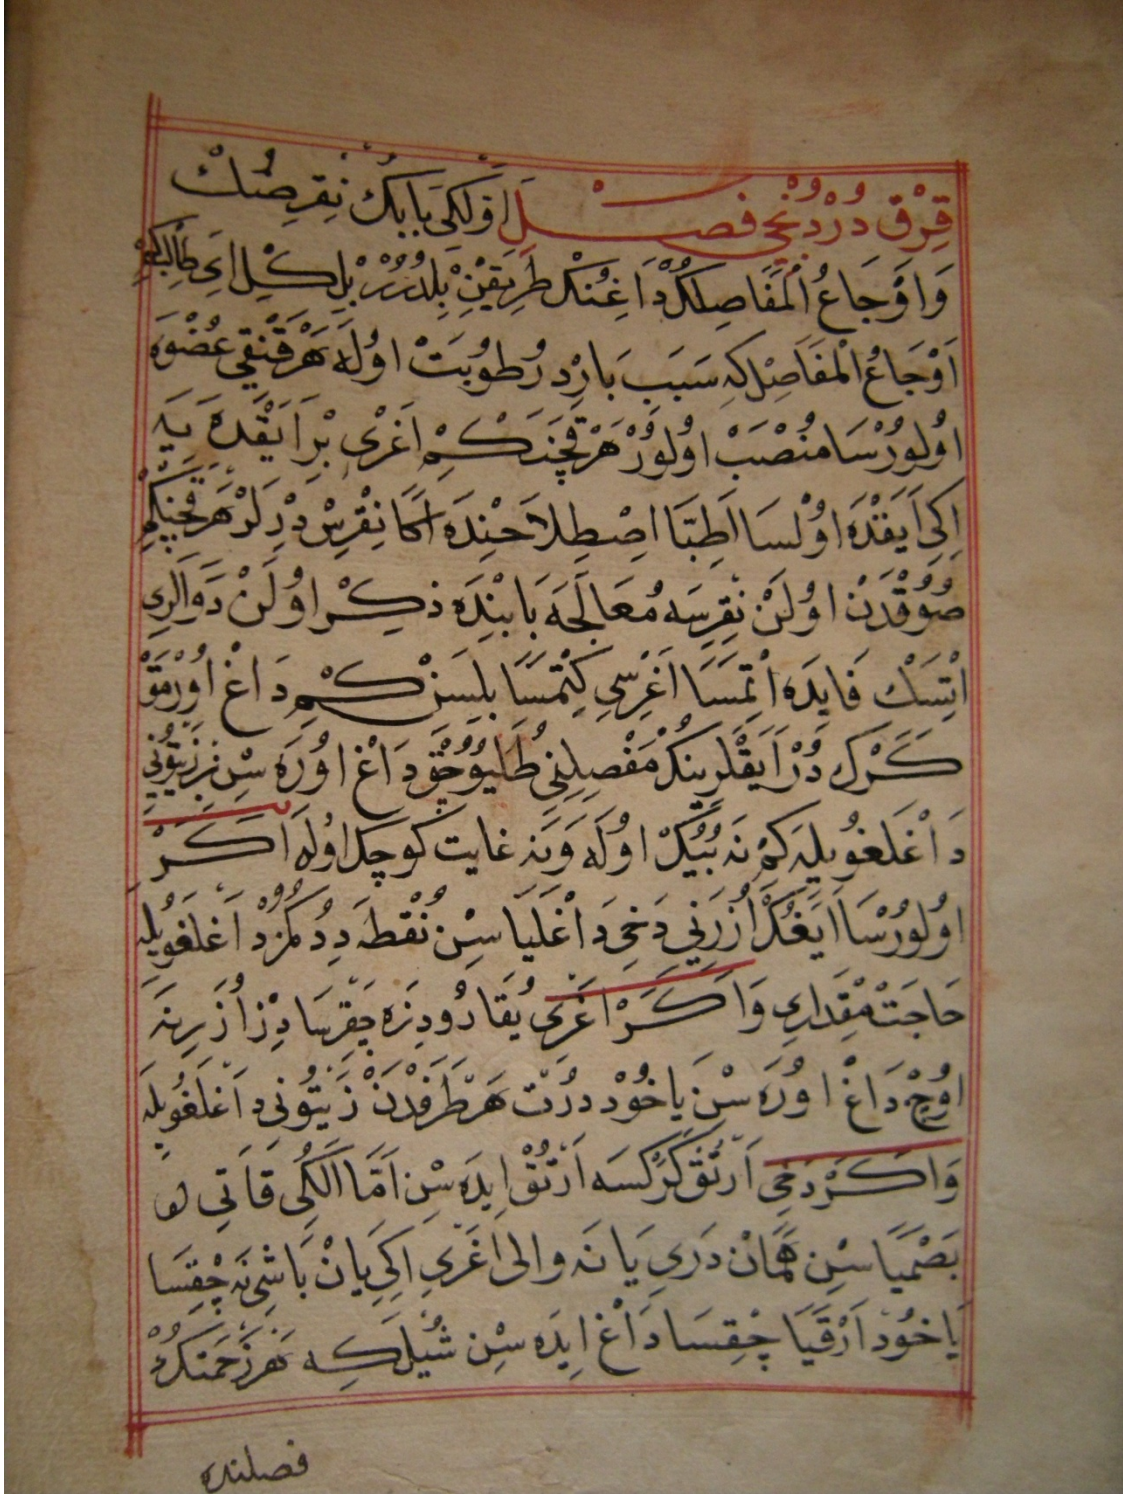 قِرْق دُرْدُنْجِي فَصْل اَوَّلكِي بَابُكْ نِقرِصُكْ
وَاَوْجَاعُ الْمَفَاصِلُكْ دَاغِنُكْ طَرِيقِنْ بِلْدُرُرْ بِلْ كِلْ اَيْ طَالِبْ كِمْ
اَوْجَاعُ الْمَفَاصِلْ كِه سَبَب بَارِدْ رُطُوبَتْ اوُلَه هَرْ قَنْقِي عُضْوَه
اوُلوُرْسَا مُنْصَبْ اوُلوُرْ هَرْ قَچَنْ كِمْ اَغْرِى بْرْ اَيَقْدَه يَه
اِكِي اَيَقْدَه اوُلْسَا اَطِبَّا اِصْطِلَاحِنْدَه اَكَا نِقْرِسْ دِرلَرْ هَرْ قَچَنْكِمْ
صُوُقْدَنْ اوُلَنْ نِقرِسَه مُعَالَجَه بَابِنْدَه ذِكِرْ اوُلَنْ دَوَالَرِى
اتِسَكْ فَايِدَه اتْمَسَا اَغْرِسِي كِتْمَسَا بِلَسِنْ كِمْ دَاغْ اوُرْمَقْ
كَرَكْ دُرْ اَيَقْلَرِينُكْ مَفْصِلِنِي طُلَيُوُجَقْ دَاغْ اوُرَه سِنْ زَيْتُونِي
دَاغْلَغُويلَه كِمْ نَه بُيُكْ اوُلَه وَنَه غايت كوچك اوُلَه اَكَرْ
اوُلوُرْسَا اَيَغُكْ اُزَرِنِي دَخِي دَاغْلَيَاسِنْ نُقْطَه دِدُكُمُزْ دَاغْلَغُويلَه
حَاجَتْ مِقْدَارِى وَاكَرْ اغْرِى يُقَارُودِزَه چِقرسَا دِزْ اُزَرِينَه
اوُچْ دَاغْ اوُرَه سْنَ يَاخُوْد دُرْت هَرْ طَرَفْدَنْ زَيْتُونِي دَاغْلَغُويلَه
وَاكَرْ دَخِي اَرْتُقْ كَرَكْسَه اَرْتُقْ ايدَه سِنْ اَمَّا اَلكِى قَاتِي
بَصْمَيَاسِنْ هَمَانْ دَرِي يَانَه والى اَغْرِي اِكِي يَانْ بَاشِنَه چِقسَا
يَاخُود اَرْقَيَا چِقسَا دَاغْ ايدَه سِنْ شُيلَ كِه هَرْ زَحْمَتُكْ
فصلنده